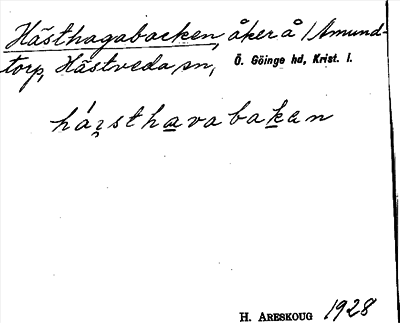 Hästhagabacken, åker å 1 Amund-
torp, Hästveda sn, Ö. Göinge hd, Krist. l.
hásthavabakan
H. ARESKOUG 1928